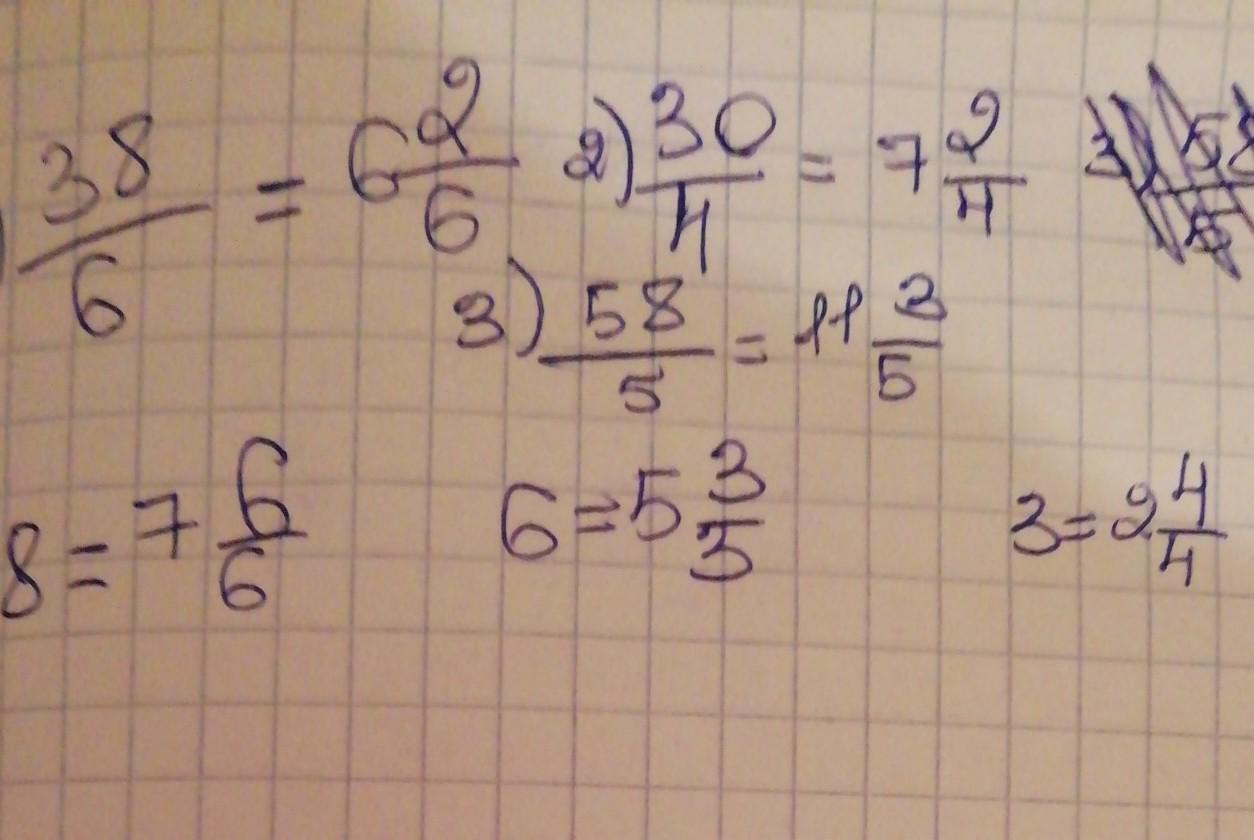 ) 38/6 = 6 2/6 2) 30/4 = 7 2/4
3) 58/5 = 11 3/5
8 = 7 6/6 6 = 5 3/3 3 = 2 4/4